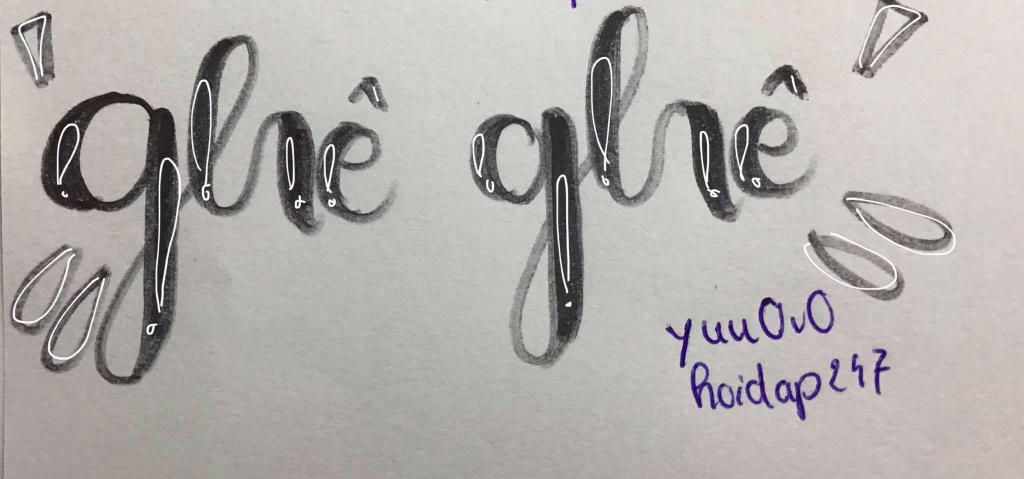 ghê ghê
yuuOvO
hoidap247